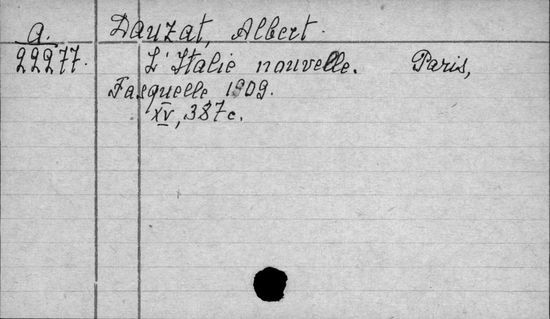 A. Dauzat, Albert.
22277. L'Italie nouvelle. Paris,
Fasquelle, 1909.
XV, 387 c.